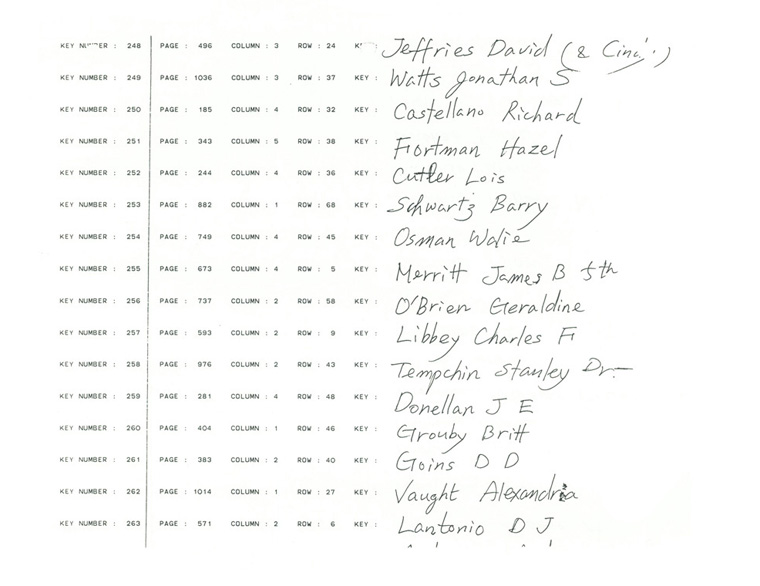 KEY NUMBER : 248 PAGE : 496 COLUMN : 3 ROW : 24 Jeffries David (&
KEY NUMBER : 249 PAGE : 1036 COLUMN : 3 ROW : 37 KEY : Watts Jonathan S
KEY NUMBER : 250 PAGE : 185 COLUMN : 4 ROW : 32 KEY : Castellano Richard
KEY NUMBER : 251 PAGE : 343 COLUMN : 5 ROW : 38 KEY : Fortman Hazel
KEY NUMBER : 252 PAGE : 244 COLUMN : 4 ROW : 36 KEY : Cutler Lois
KEY NUMBER : 253 PAGE : 882 COLUMN : 1 ROW : 68 KEY : Schwartz Barry
KEY NUMBER : 254 PAGE : 749 COLUMN : 4 ROW : 45 KEY : Osman Walie
KEY NUMBER : 255 PAGE : 673 COLUMN : 4 ROW : 5 KEY : Merritt James B 5th
KEY NUMBER : 256 PAGE : 737 COLUMN : 2 ROW : 58 KEY : O'Brien Geraldine
KEY NUMBER : 257 PAGE : 593 COLUMN : 2 ROW : 9 KEY : Libbey Charles F
KEY NUMBER : 258 PAGE : 976 COLUMN : 2 ROW : 43 KEY : Tempchin Stanley Dr.
KEY NUMBER : 259 PAGE : 281 COLUMN : 4 ROW : 48 KEY : Donellan J E
KEY NUMBER : 260 PAGE : 404 COLUMN : 1 ROW : 46 KEY : Grouby Britt
KEY NUMBER : 261 PAGE : 383 COLUMN : 2 ROW : 40 KEY : Goins D D
KEY NUMBER : 262 PAGE : 1014 COLUMN : 1 ROW : 27 KEY : Vaught Alexandria
KEY NUMBER : 263 PAGE : 571 COLUMN : 2 ROW : 6 KEY : Lantonio D J